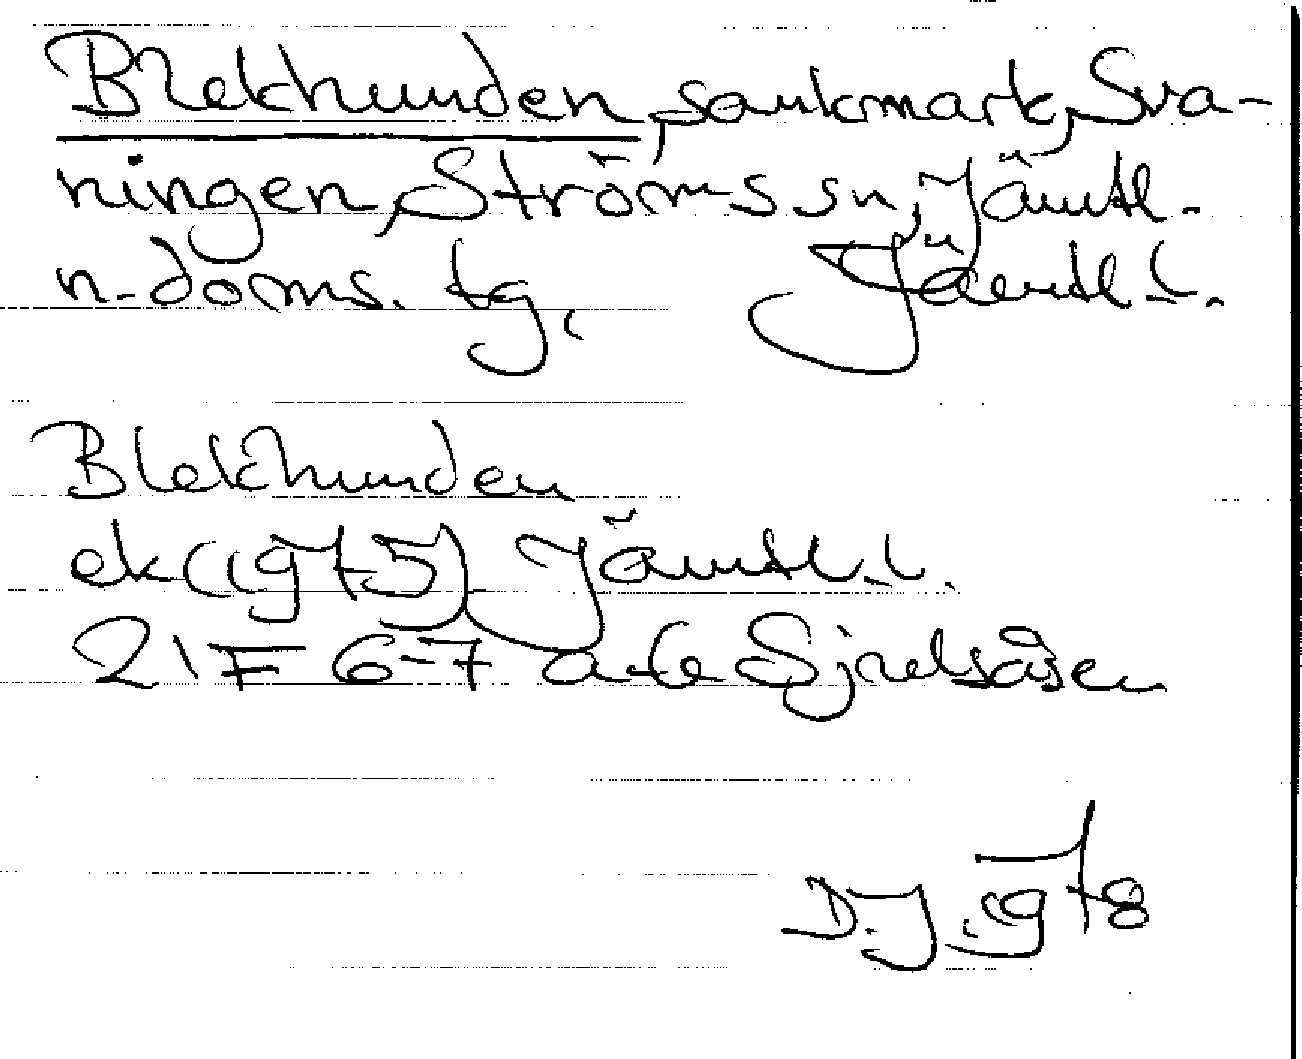 Blekhunden, sankmark, Sva-
ningen, Ströms sn, Jämtl.
n. doms. tg, Jämtl. l.
Blekhunden
ek (1975) Jämtl. l.
21F 6-7 a-b Sjulsåsen
D.J. 1978